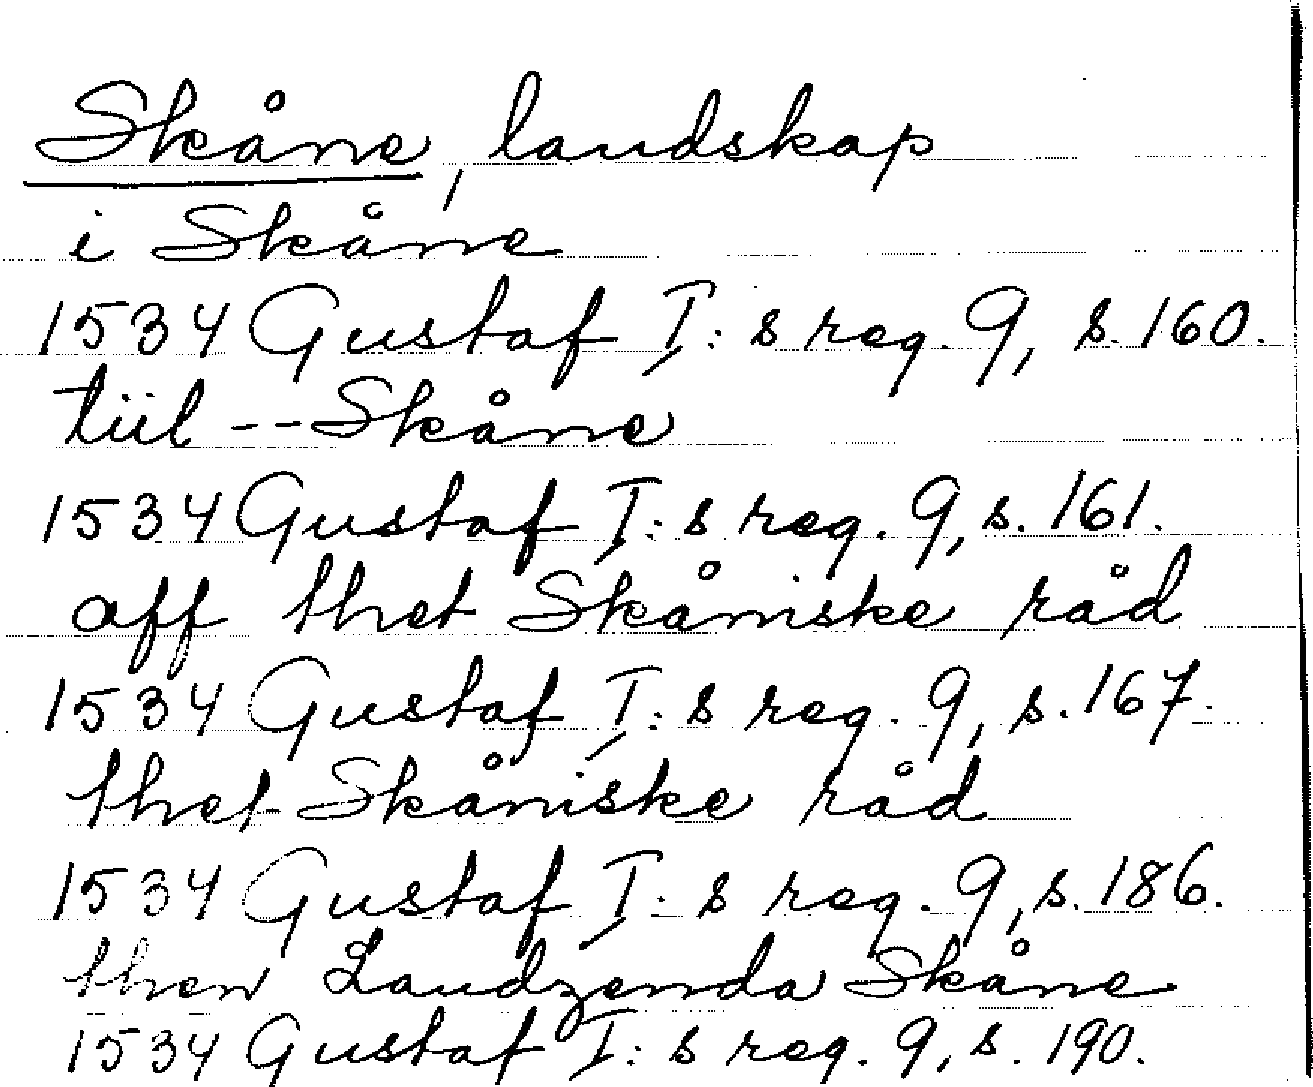 Skåne, landskap
i Skåne
1534 Gustaf I:s reg. 9, s. 160.
tiil -- Skåne
1534 Gustaf I:s reg. 9, s. 161.
aff thet Skåniske råd
1534 Gustaf I:s reg. 9, s. 167.
thet Skåniske råd
1534 Gustaf I:s reg. 9, s. 186.
then Landzenda Skåne
1534 Gustaf I:s reg. 9, s. 190.